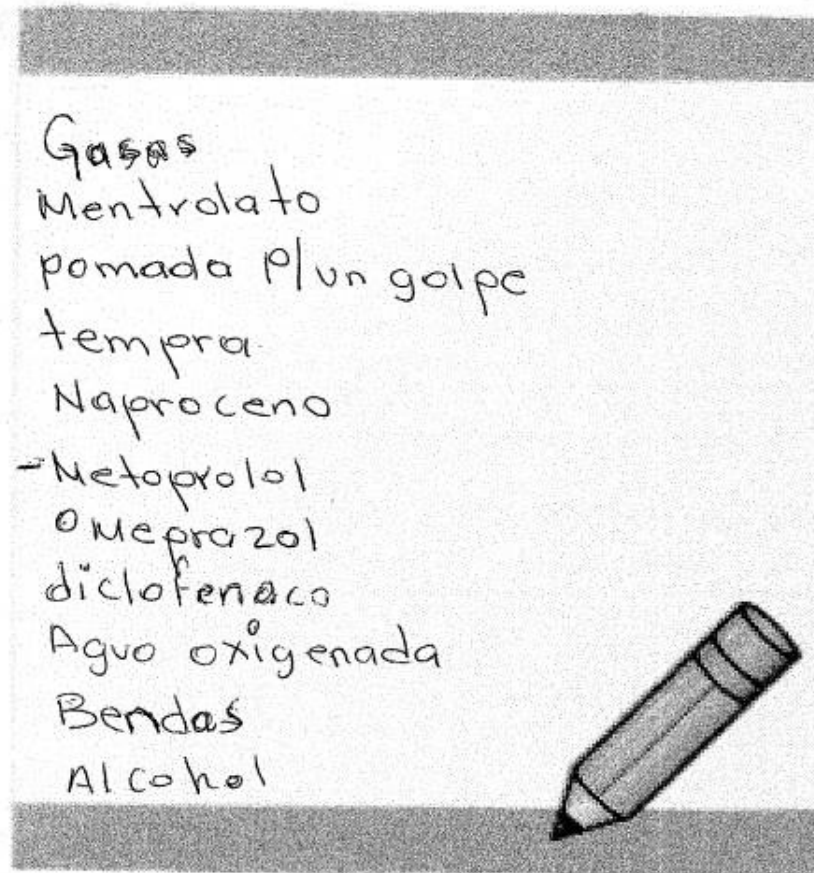 Gasas
Mentrolato
pomada p/un golpe
tempra
Naproceno
-Metoprolol
Omeprazol
diclofenaco
Agua oxigenada
Bendas
Alcohol